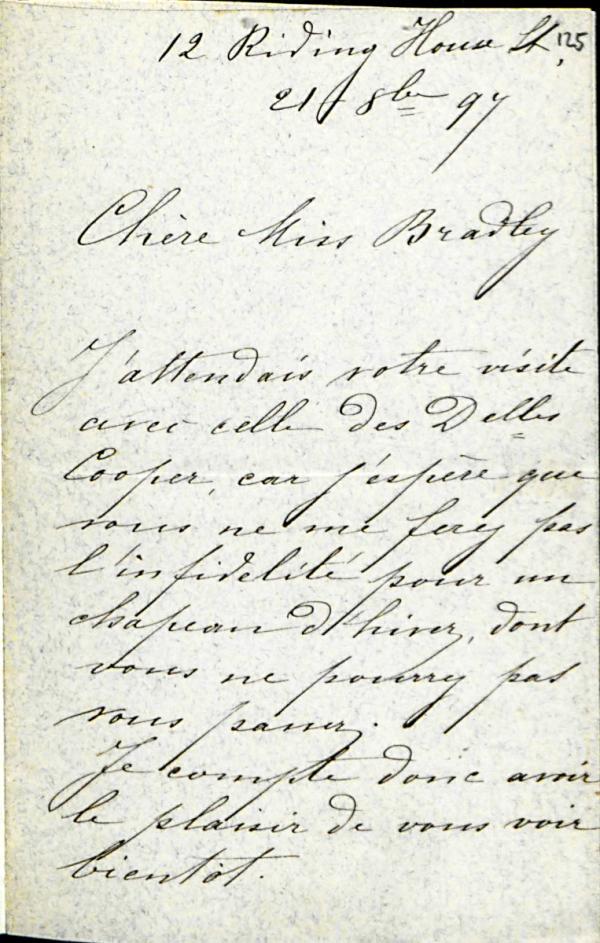 12 Riding House St, 125
21 8bre 97
Chère Miss Bradley
J'attendais votre visite
avec celle des Delles
Cooper, car j'espère que
vous ne me ferez pas
l'infidelité pour un
chapeau d'hiver, dont
vous ne pourrez pas
vous passer.
Je compte donc avoir
le plaisir de vous voir
bientôt.